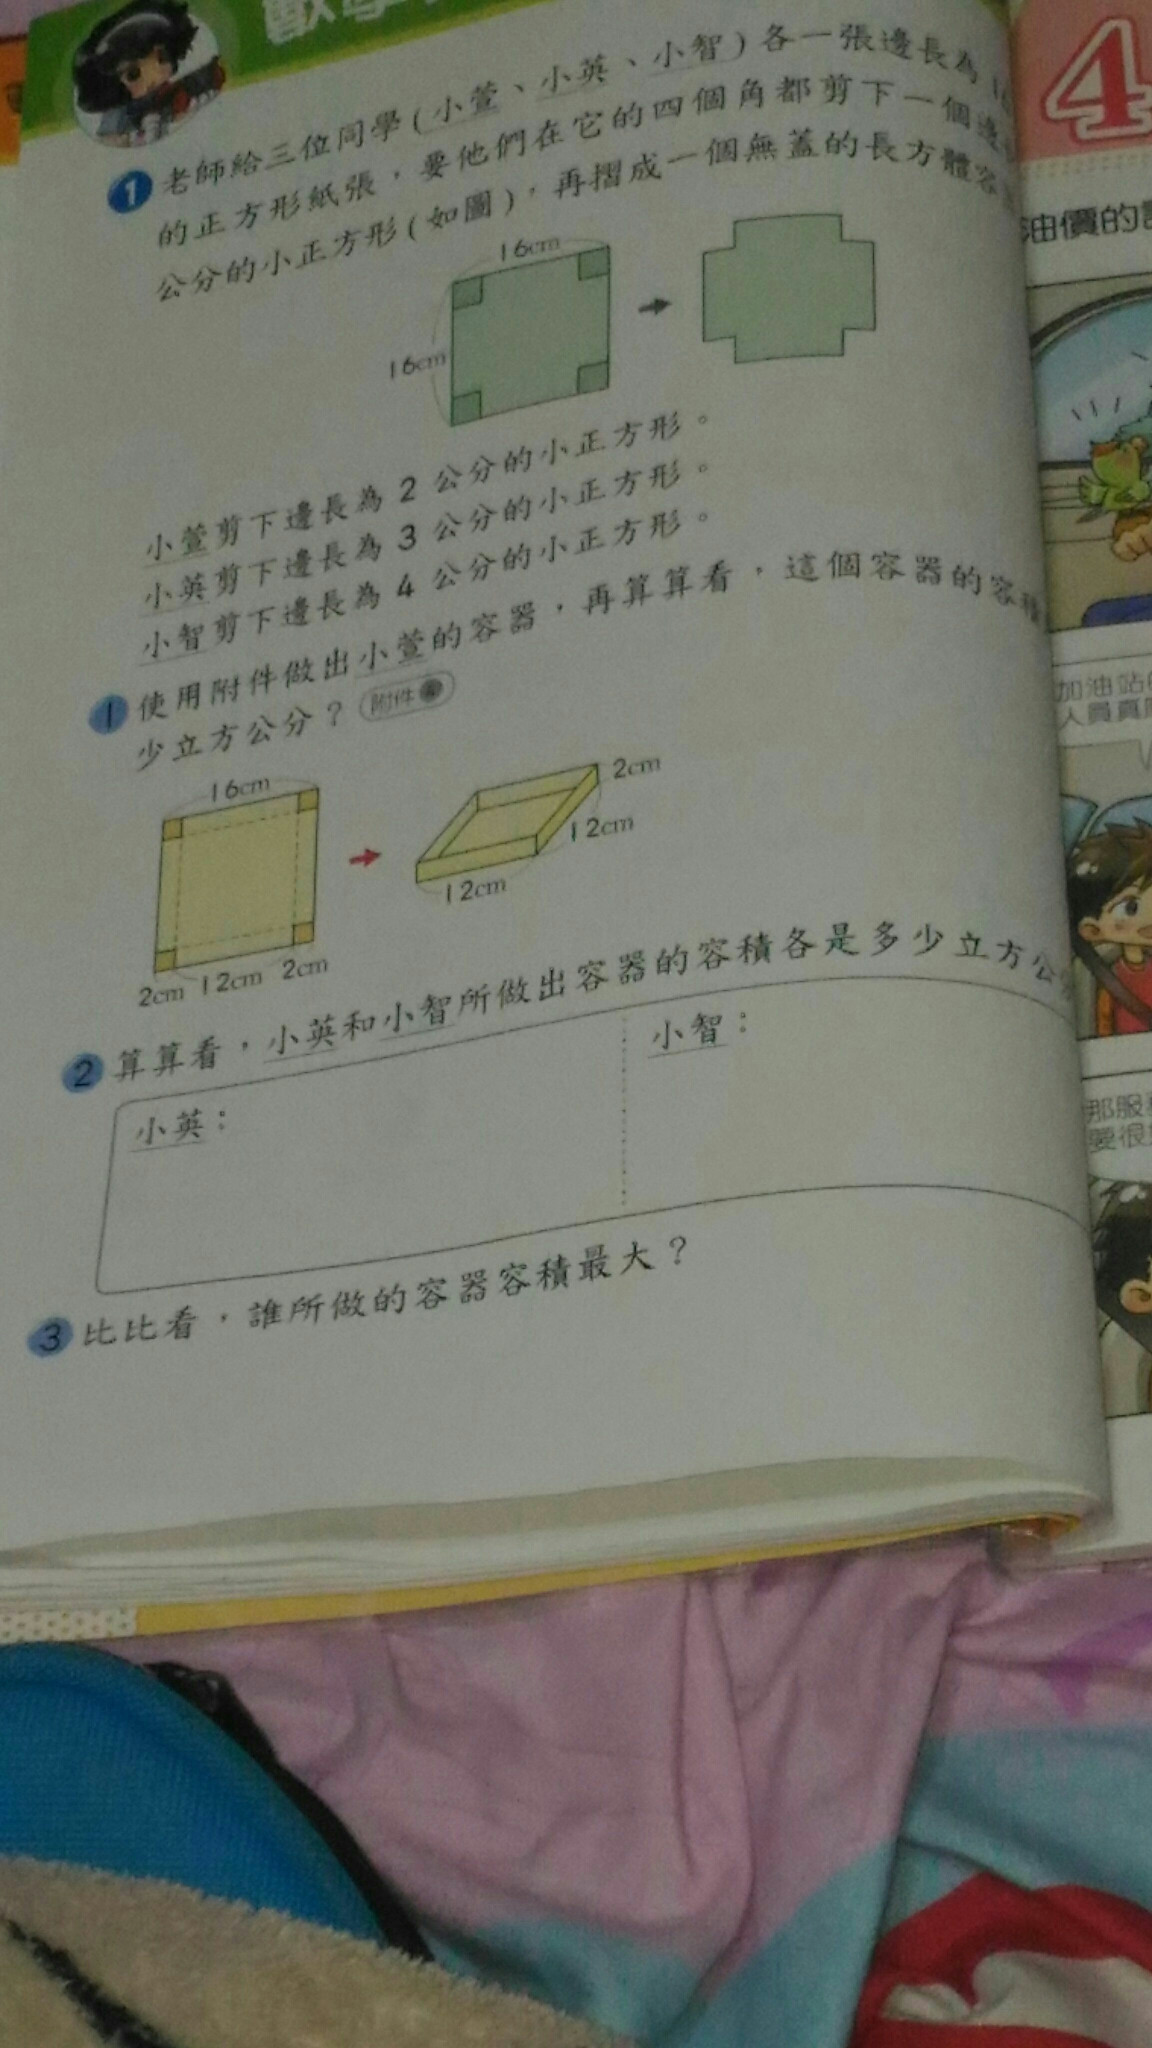 老師給三位同學(小萱、小英、小智)各一張邊長為
的正方形紙張，要他們在它的四個角都剪下一個邊
公分的小正方形(如圖)，再摺成一個無蓋的長方體容
16cm
16cm
小萱剪下邊長為 2 公分的小正方形。
小英剪下邊長為 3 公分的小正方形。
小智剪下邊長為 4 公分的小正方形。
1 使用附件做出小萱的容器，再算算看，這個容器的容積
少立方公分？ 附件
16cm
2cm
12cm
12cm
2cm 12cm 2cm
2 算算看，小英和小智所做出容器的容積各是多少立方公
小英：
小智：
3 比比看，誰所做的容器容積最大？
4
油價的
加油站
人員真
那服
變很